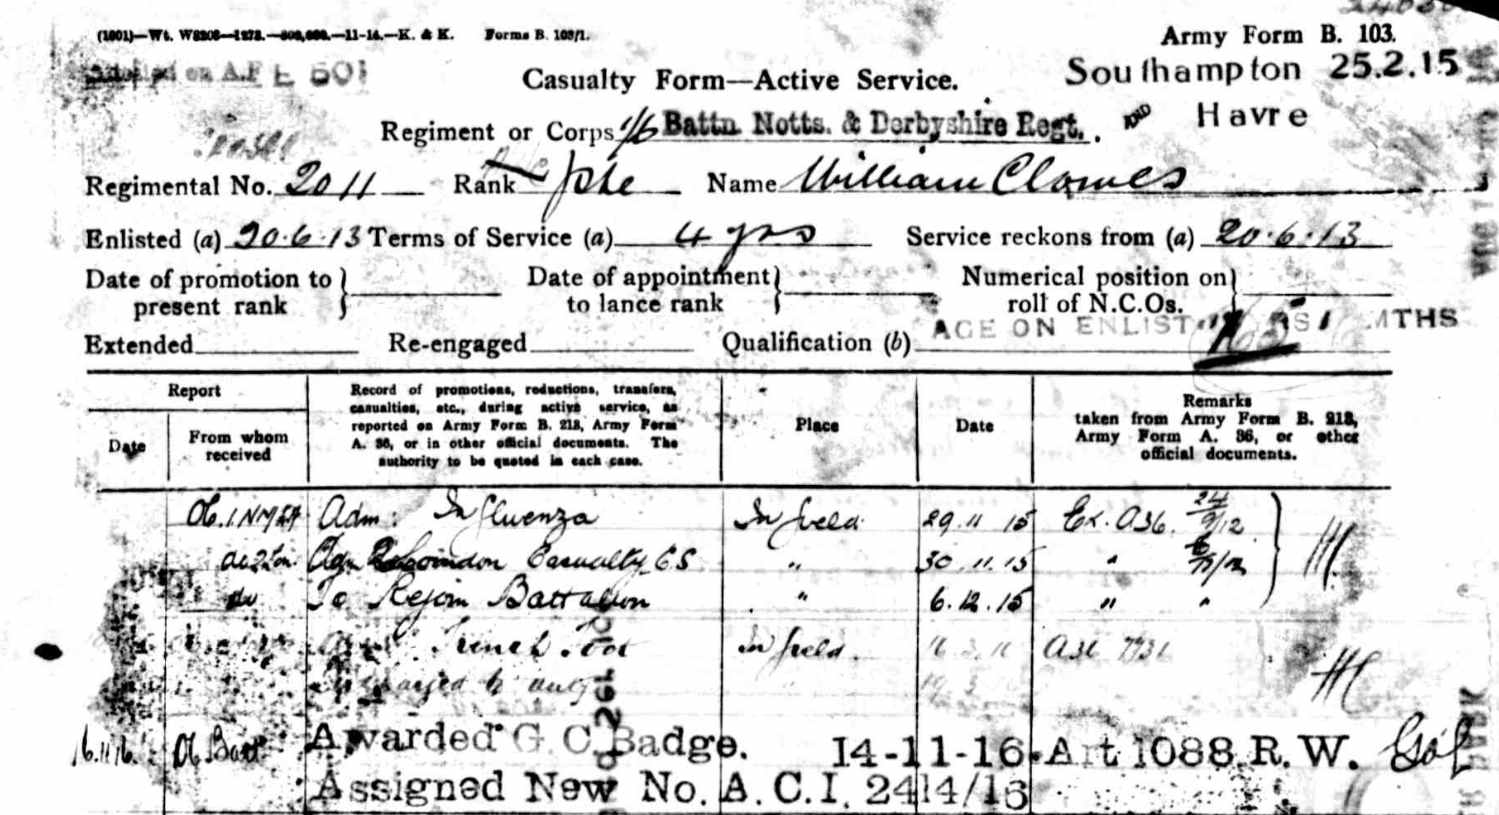 Forms B. 103/1.
Army Form B. 103.
Casualty Form—Active Service.
Southampton 25.2.15
Regiment or Corps 1/6 Battn. Notts. & Derbyshire Regt.
AND Havre
Regimental No. 2011 Rank Pte Name William Clowes
Enlisted (a) 20.6.13 Terms of Service (a) 4 yrs Service reckons from (a) 20.6.13
Date of promotion to present rank
Date of appointment to lance rank
Numerical position on roll of N.C.Os.
AGE ON ENLIST MTHS
Extended Re-engaged Qualification (b)
Report
Date
From whom received
Record of promotions, reductions, transfers, casualties, etc., during active service, as reported on Army Form B. 213, Army Form A. 36, or in other official documents. The authority to be quoted in each case.
Place
Date
Remarks taken from Army Form B. 213, Army Form A. 36, or other official documents.
Adm: Influenza In field 29.11.15 Ex. A36.
Casualty CS " 30.11.15 "
To Rejoin Battalion " 6.12.15 " "
Trench Foot in field A36
16.11.16. Awarded G. C. Badge. 14-11-16. Art 1088 R. W.
Assigned New No. A. C. I. 2414/16